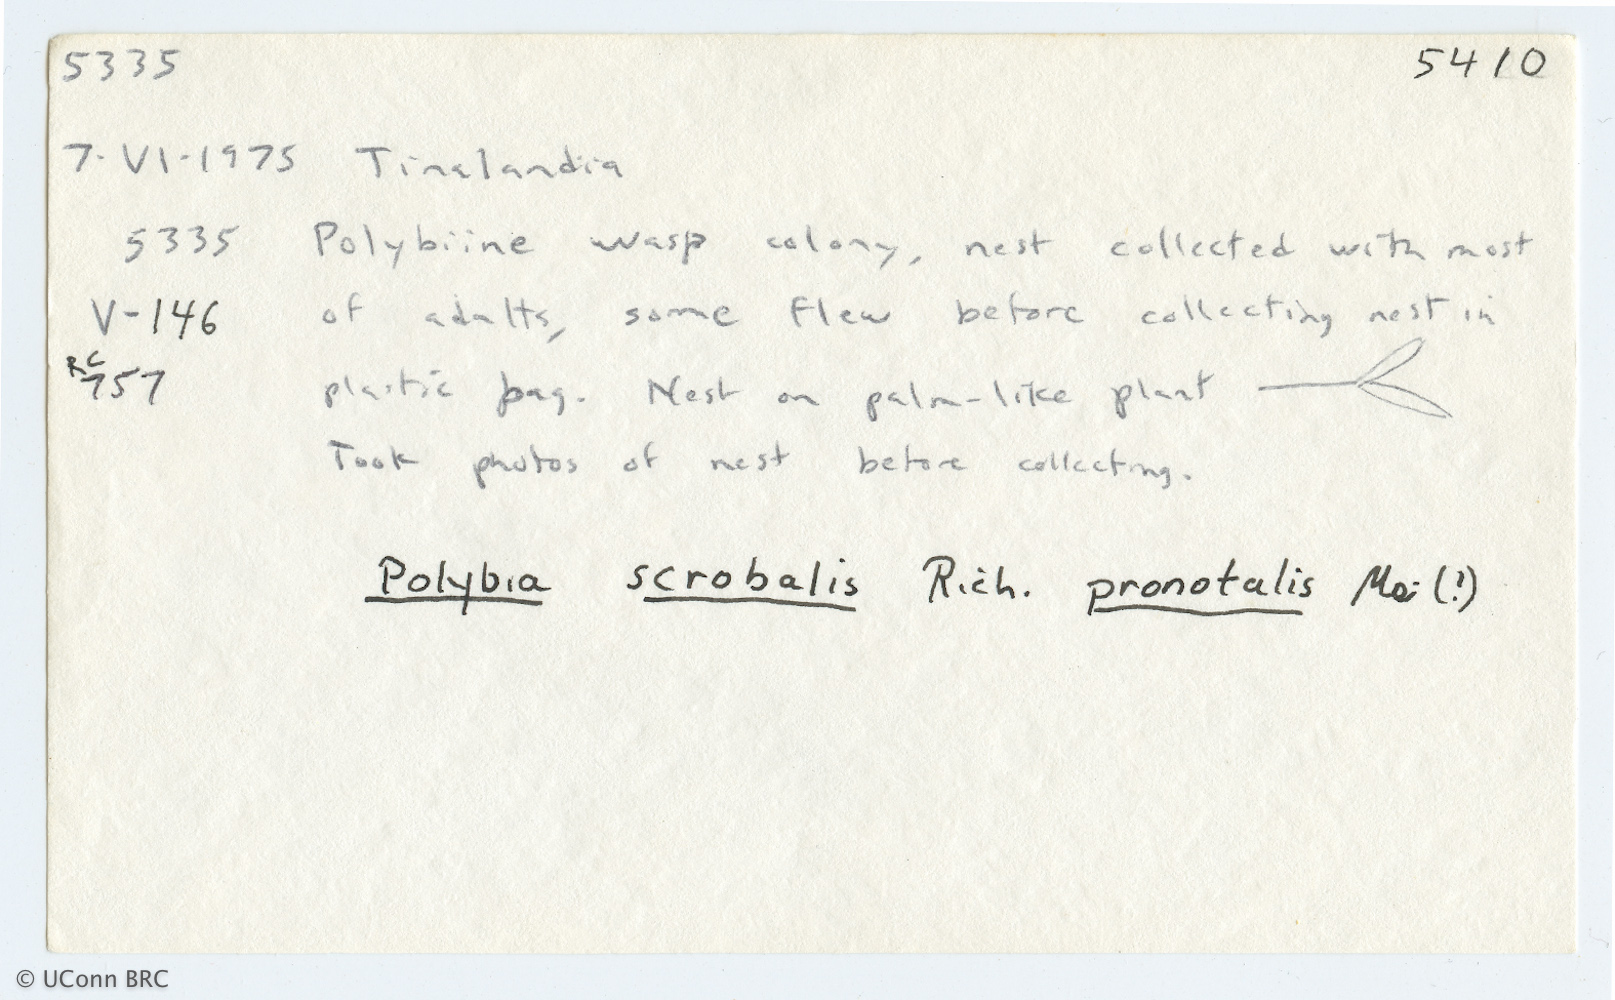 5335 5410
7-VI-1975 Tinalandia
5335 Polybiine wasp colony, nest collected with most
V-146 of adults, some flew before collecting nest in
RC 757 plastic bag. Nest on palm-like plant
Took photos of nest before collecting.
Polybia scrobalis Rich. pronotalis (!)
© UConn BRC